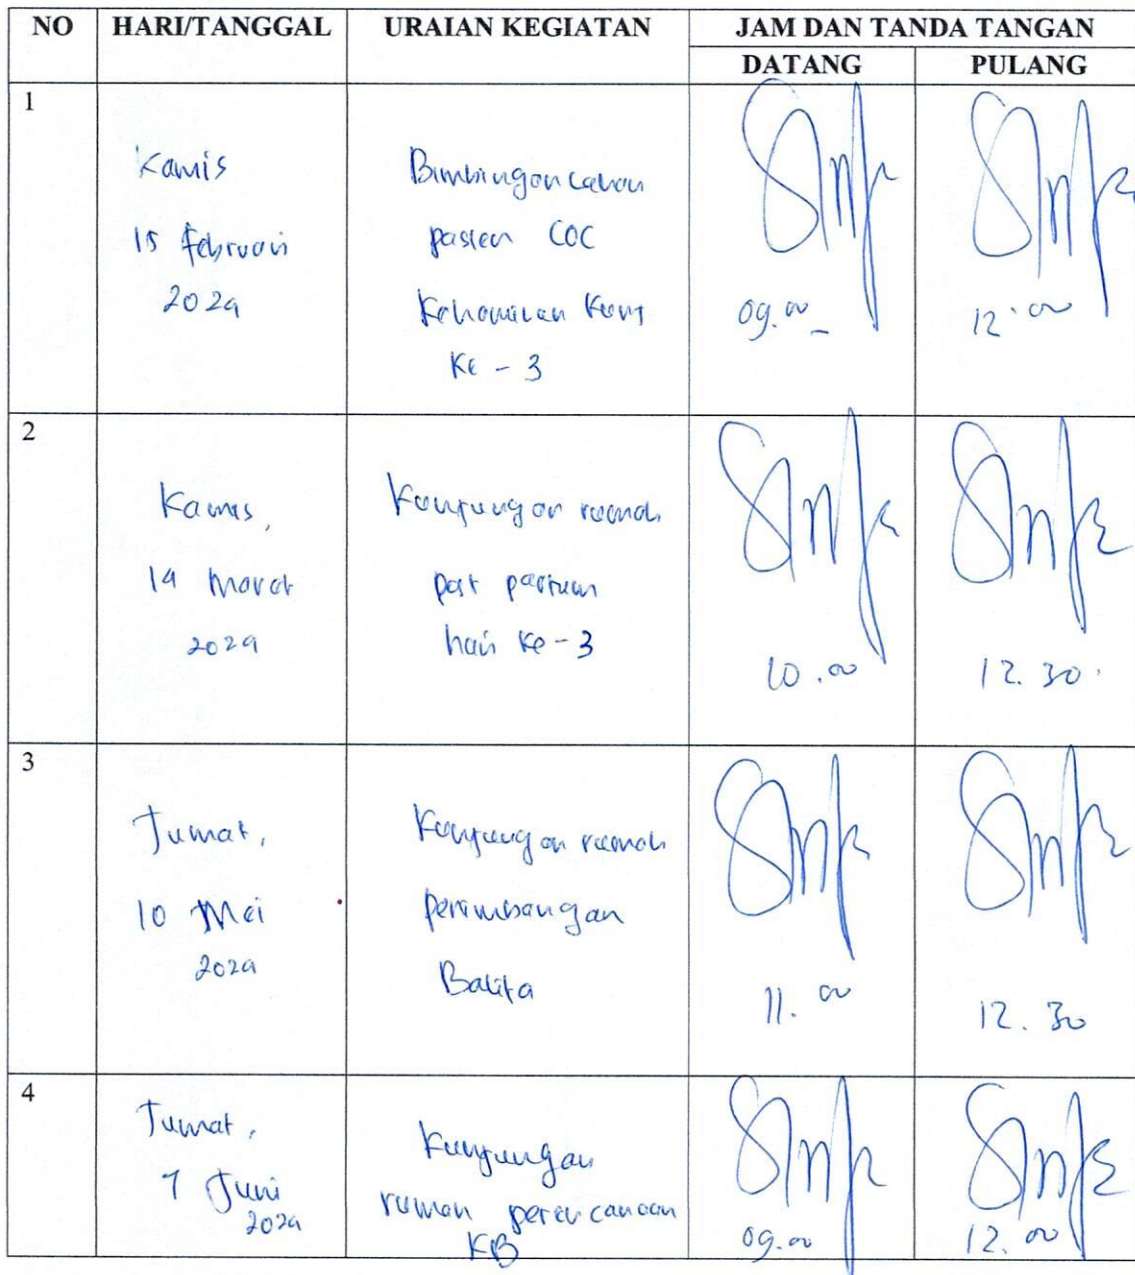 NO HARI/TANGGAL URAIAN KEGIATAN JAM DAN TANDA TANGAN
DATANG PULANG
1
Kamis
15 Februari
2024
Bimbingan Cahon
pasien COC
Kehamilan Kunj
Ke - 3
09.00
12.00
2
Kamis,
14 Maret
2024
Kunjungan rumah
post partum
hari ke - 3
10.00
12.30
3
Jumat,
10 Mei
2024
Kunjungan rumah
penimbangan
Balita
11.00
12.30
4
Jumat,
7 Juni
2024
Kunjungan
rumah perencanaan
KB
09.00
12.00